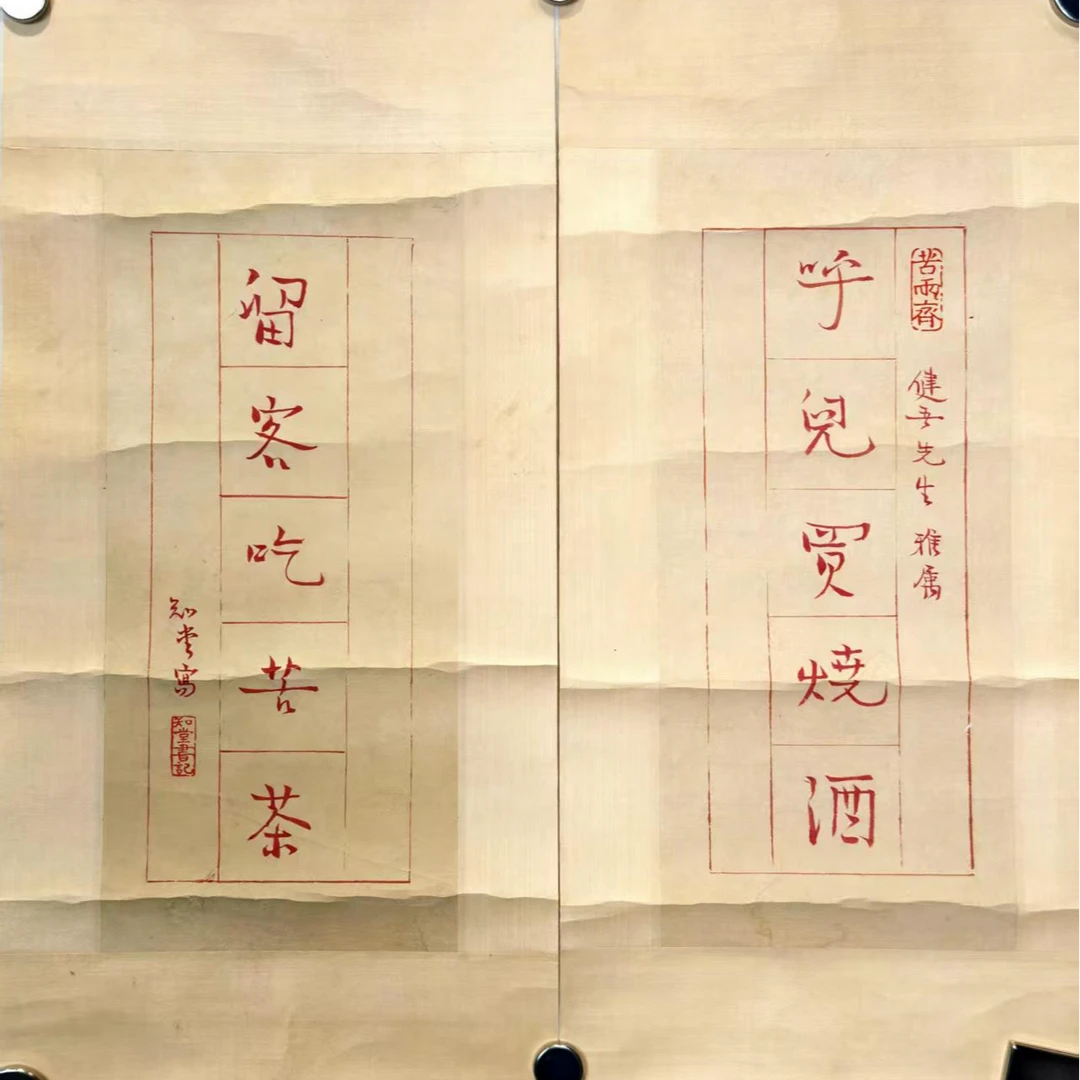 苦雨齋
健吾先生雅属
呼兒買燒酒
留客吃苦茶
知堂寫
知堂書記